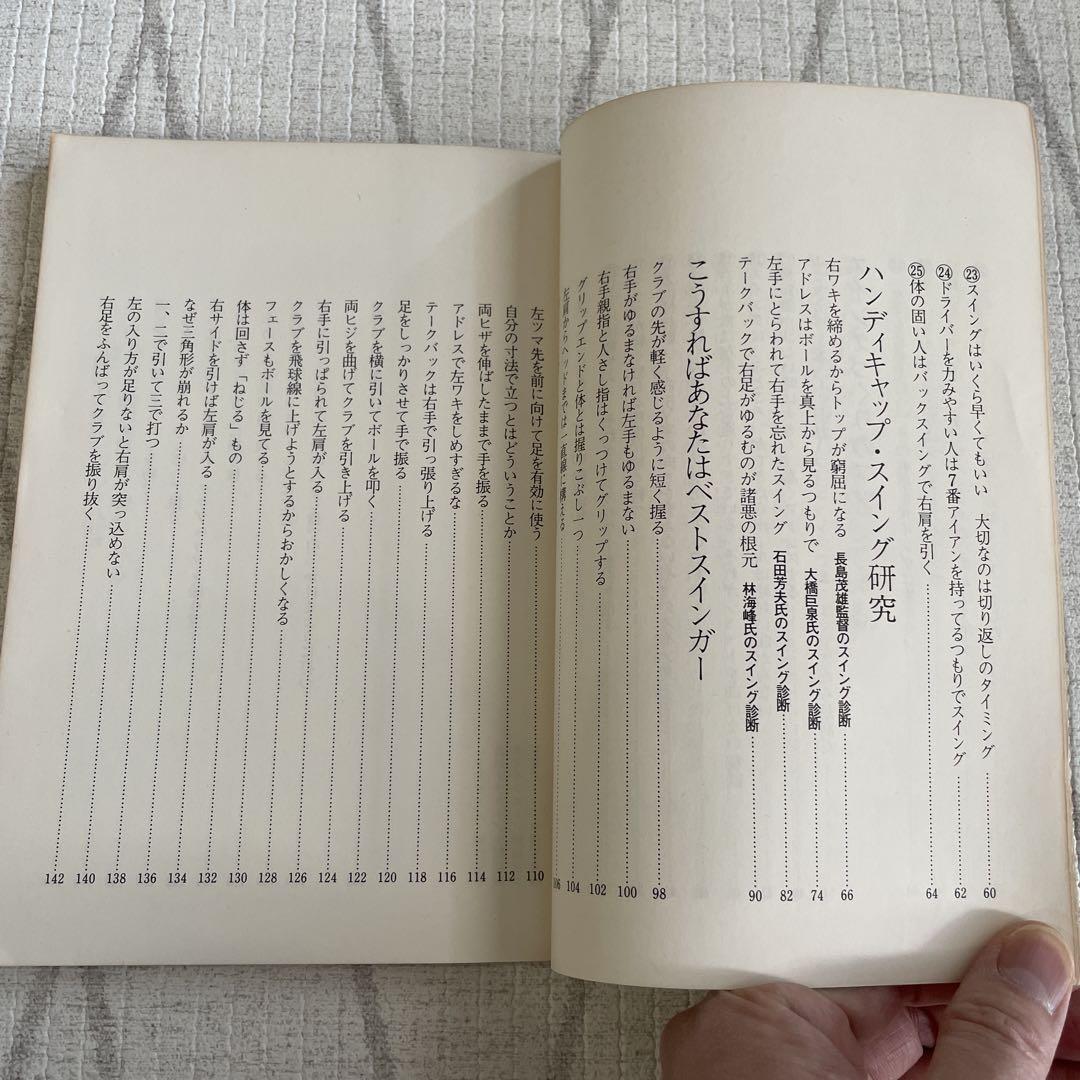 ㉓スイングはいくら早くてもいい　大切なのは切り返しのタイミング……60
㉔ドライバーを力みやすい人は7番アイアンを持ってるつもりでスイング……62
㉕体の固い人はバックスイングで右肩を引く……64
ハンディキャップ・スイング研究
右ワキを締めるからトップが窮屈になる　長島茂雄監督のスイング診断……66
アドレスはボールを真上から見るつもりで　大橋巨泉氏のスイング診断……74
左手にとらわれて右手を忘れたスイング　石田芳夫氏のスイング診断……82
テークバックで右足がゆるむのが諸悪の根元　林海峰氏のスイング診断……90
こうすればあなたはベストスインガー
クラブの先が軽く感じるように短く握る……98
右手がゆるまなければ左手もゆるまない……100
右手親指と人さし指はくっつけてグリップする……102
グリップエンドと体とは握りこぶし一つ……104
左肩からヘッドまでは一直線に構える……106
左ツマ先を前に向けて足を有効に使う……110
自分の寸法で立つとはどういうことか……112
両ヒザを伸ばしたままで手を振る……114
アドレスで左ワキをしめすぎるな……116
テークバックは右手で引っ張り上げる……118
足をしっかりさせて手で振る……120
クラブを横に引いてボールを叩く……122
両ヒジを曲げてクラブを引き上げる……124
右手に引っぱられて左肩が入る……126
クラブを飛球線に上げようとするからおかしくなる……128
フェースもボールを見てる……130
体は回さず「ねじる」もの……132
右サイドを引けば左肩が入る……134
なぜ三角形が崩れるか……136
一、二で引いて三で打つ……138
左の入り方が足りないと右肩が突っ込めない……140
右足をふんばってクラブを振り抜く……142